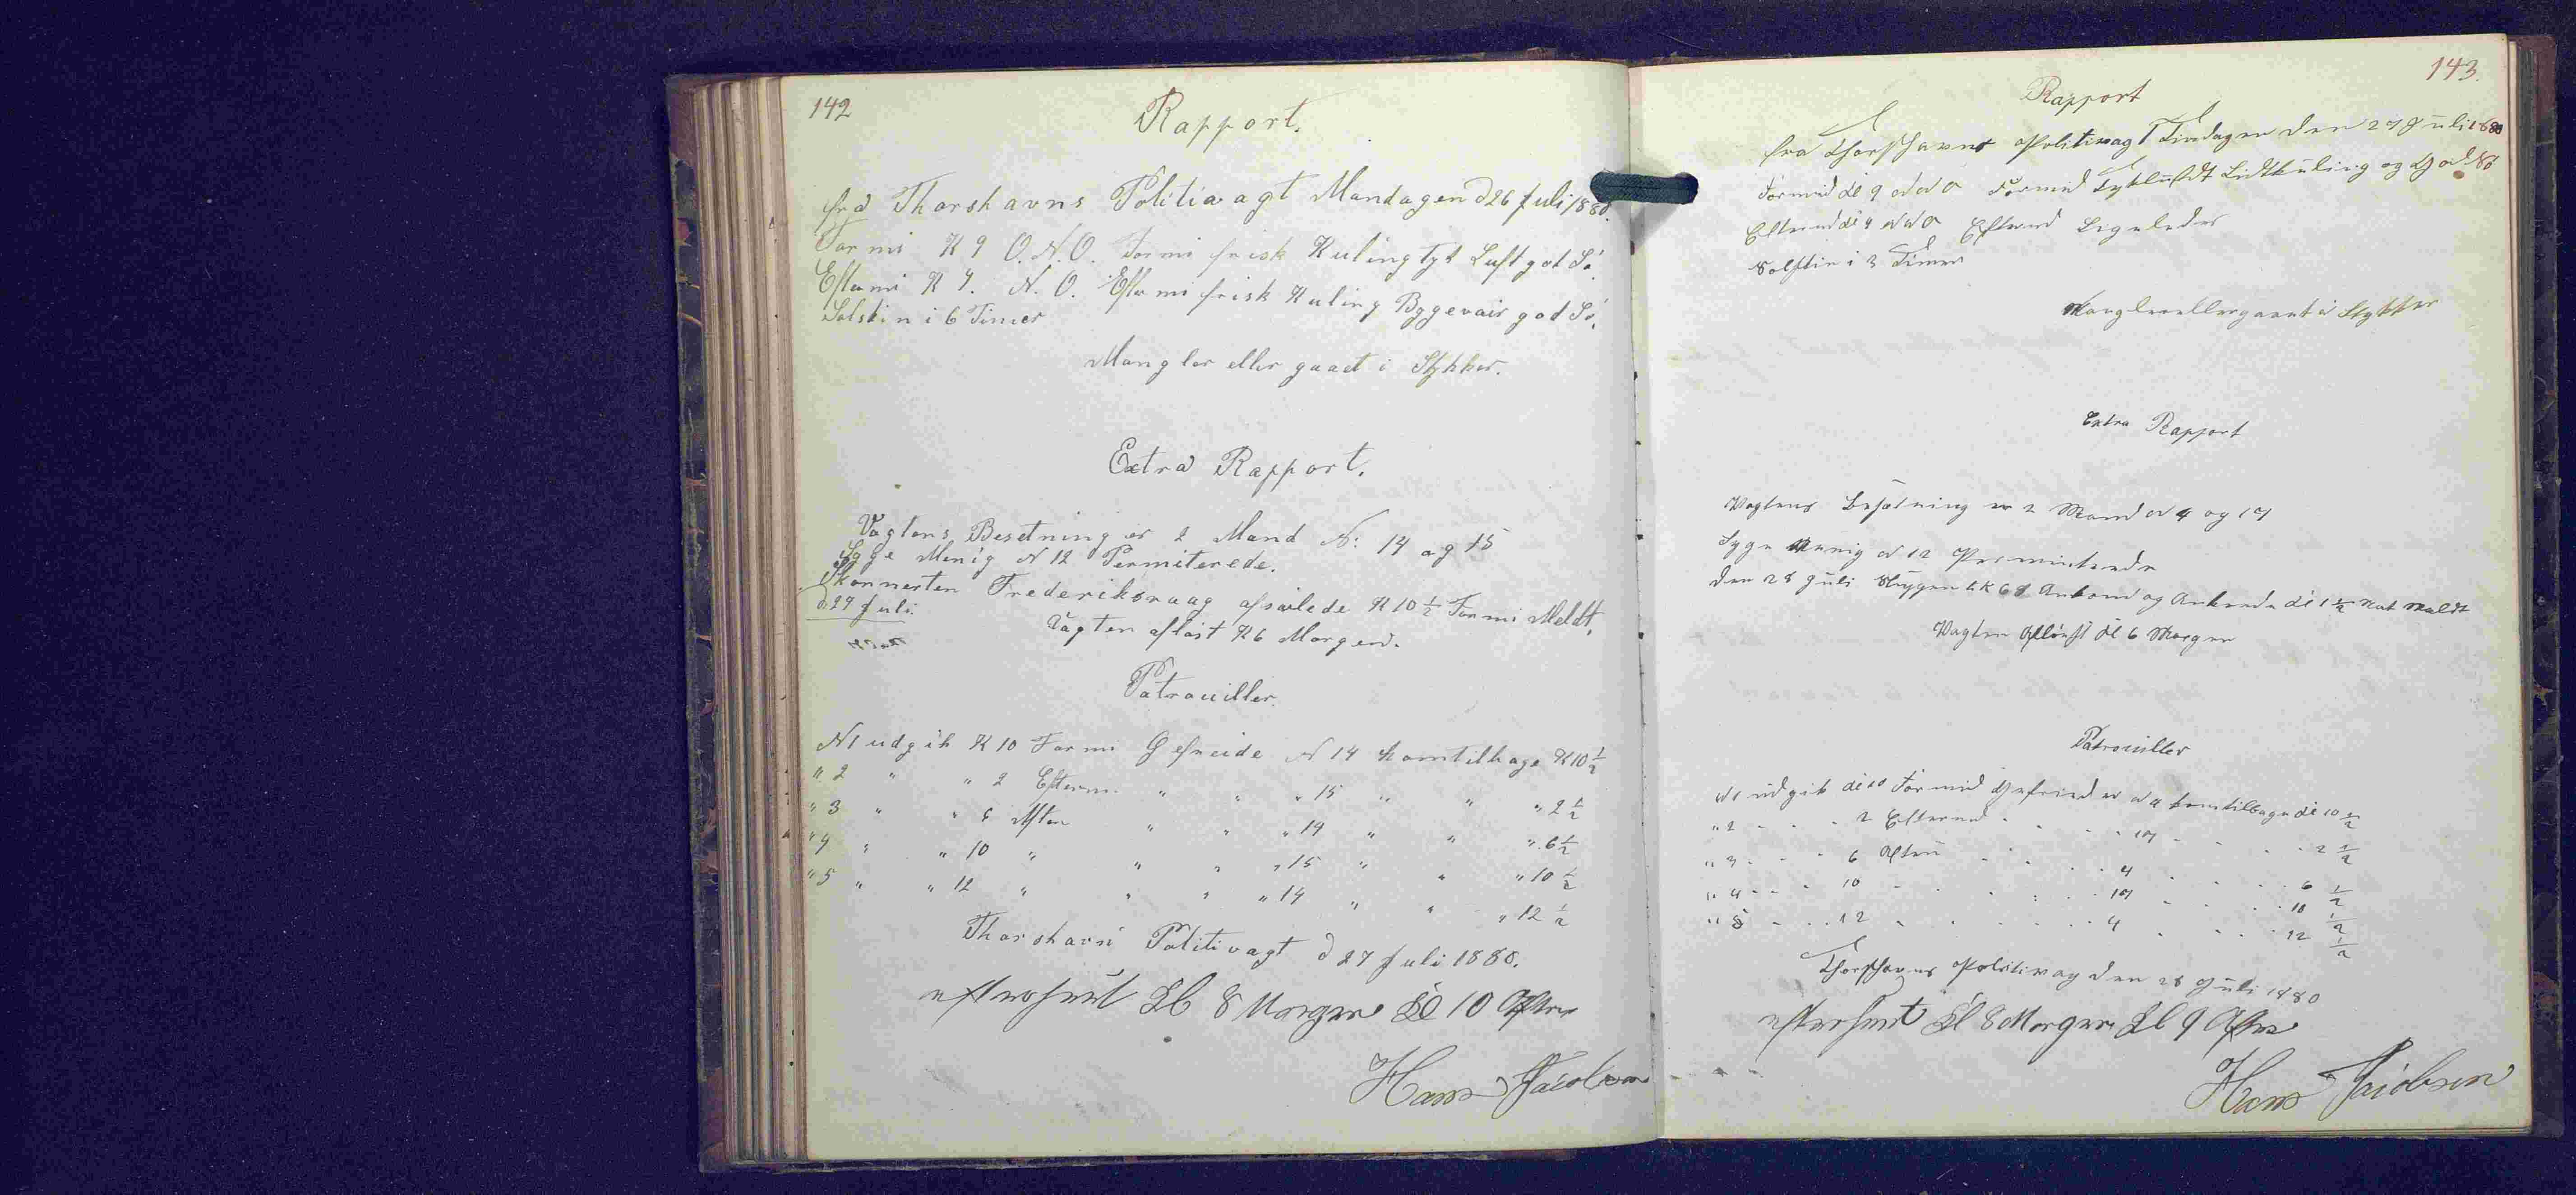 142
Rapport.
fra Thorshavns Politivagt Mandagen d 26 Juli 1880.
Formi Kl 9 O.N.O. Formi frisk Kuling tyk Luft got Sö.
Eftermi Kl 4. N.O. Eftermi frisk Kuling Byggevair god Sö.
Solskin i 6 Timer
Mangler eller gaaet i Stykker.
Extra Rapport.
Vagtens Besetning er 2 Mand No: 14 og 15
Syge Menig N 12 Permiterede.
Skonnerten Frederiksvaag afseilede Kl 10 1/2 Formi Meldt.
d. 27 Juli.
Vagten aflöst Kl 6 Morgen.
Patrouiller.
N 1 udgik Kl 10 Formi Gefreide N 14 komtilbage Kl 10 1/2
" 2 " " 2 Efterm. " " " 15 " " " 2 1/2
" 3 " " 6 Aften " " " 14 " " " 6 1/2
" 4 " " 10 " " " " 15 " " " 10 1/2
" 5 " " 12 " " " " 14 " " " 12 1/2
Thorshavn Politivagt d 27 Juli 1880.
efterseet Kl 8 Morgen Kl 10 Aften
Hans Jacobsen
143.
Rapport
fra Thorshavns Politivagt Tirsdagen den 27 Juli 1880
Formid Kl 9 N N O Formid Tyklufdt Lidtkuling og God Sö
Eftermd Kl 4 N N O Eftermd Ligeledes
Solskin i 3 Timer
Manglerellergaaet i Stykker
Extra Rapport
Vagtens Besætning er 2 Mand N 4 og 17
Syge Menig N 12 Perminterede
den 28 Juli Ankom og Ankrede Kl 1 1/2 Nat Meldt
Vagten Afløest Kl 6 Morgen
Patrouiller
N 1 udgik Kl 10 Formid Gefreider N 4 komtilbage Kl 10 1/2
" 2 - - - 2 Eftermd - - - 17 - - - 2 1/2
" 3 - - - 6 Aften - - - 4 - - - 6 1/2
" 4 - - - 10 - - - - 17 - - - 10 1/2
" 5 - - - 12 - - - - 4 - - - 12 1/2
Thorshavns Politivag den 28 Juli 1880
efterseet Kl 8 Morgen Kl 9 Aften
Hans Jacobsen